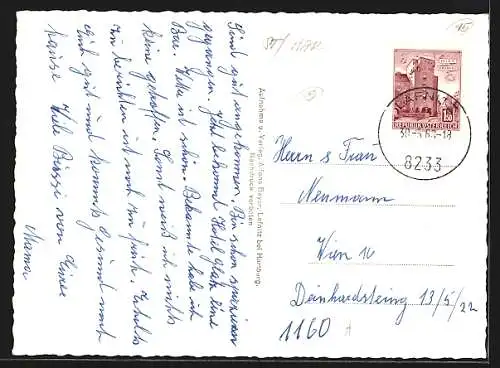 Sind gut angekommen. Bin schon spazieren
gegangen. Jetzt bekommt Hotel Glatz eine
Bar. Wetter ist schön. Bekannte habe ich
keine getroffen. Sonst weiß ich nichts
zu berichten ist noch zu früh. Erholts
Euch gut und kommts gesund nach
hause. Viele Bussi von Eurer
Mama
Aufnahme u. Verlag: Alfons Bayer, Lafnitz bei Hartberg.
Nachdruck verboten
REPUBLIK ÖSTERREICH
1.50
8233
Herrn & Frau
Neumann
Wien 10
Deinhardsteing 13/5/22
1160